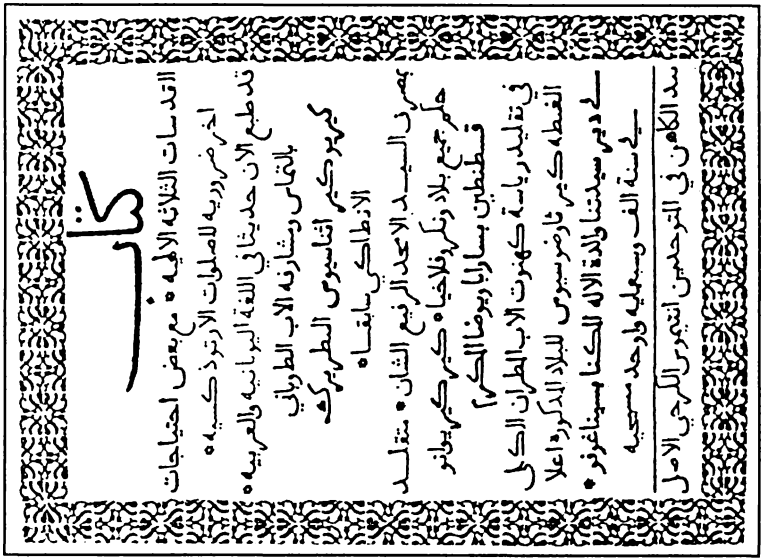 كتاب
القدسات الثلاثه الالهيه * مع بعض احتياجات
اخر ضروريه للصلوات الارتوذكسيه *
قد طبع الان حديثا في اللغة اليونانيه والعربيه *
بالتماس ومشارفة الاب الطوباني
كيريو كير اثناسيوس البطريرك
الانطاكي سابقا *
بمصرف السيد الامجد الرفيع الشان * متقلد
حكم جميع بلاد ونكروفلاخيا * كير كير يوانو
قسطنطين بسارابا ويوضا المكرم
في تقليد رياسة كهنوت الاب المطران الكلي
الغبطه كير ثاوضوسيوس للبلاد المذكورة اعلا
في دير سيدتنا والدة الاله المكنا بسيناغوفو *
في سنة الف وسبعمايه وواحد مسيحيه
بيد الكاهن في المتوحدين انتيموس الكرجي الاصل